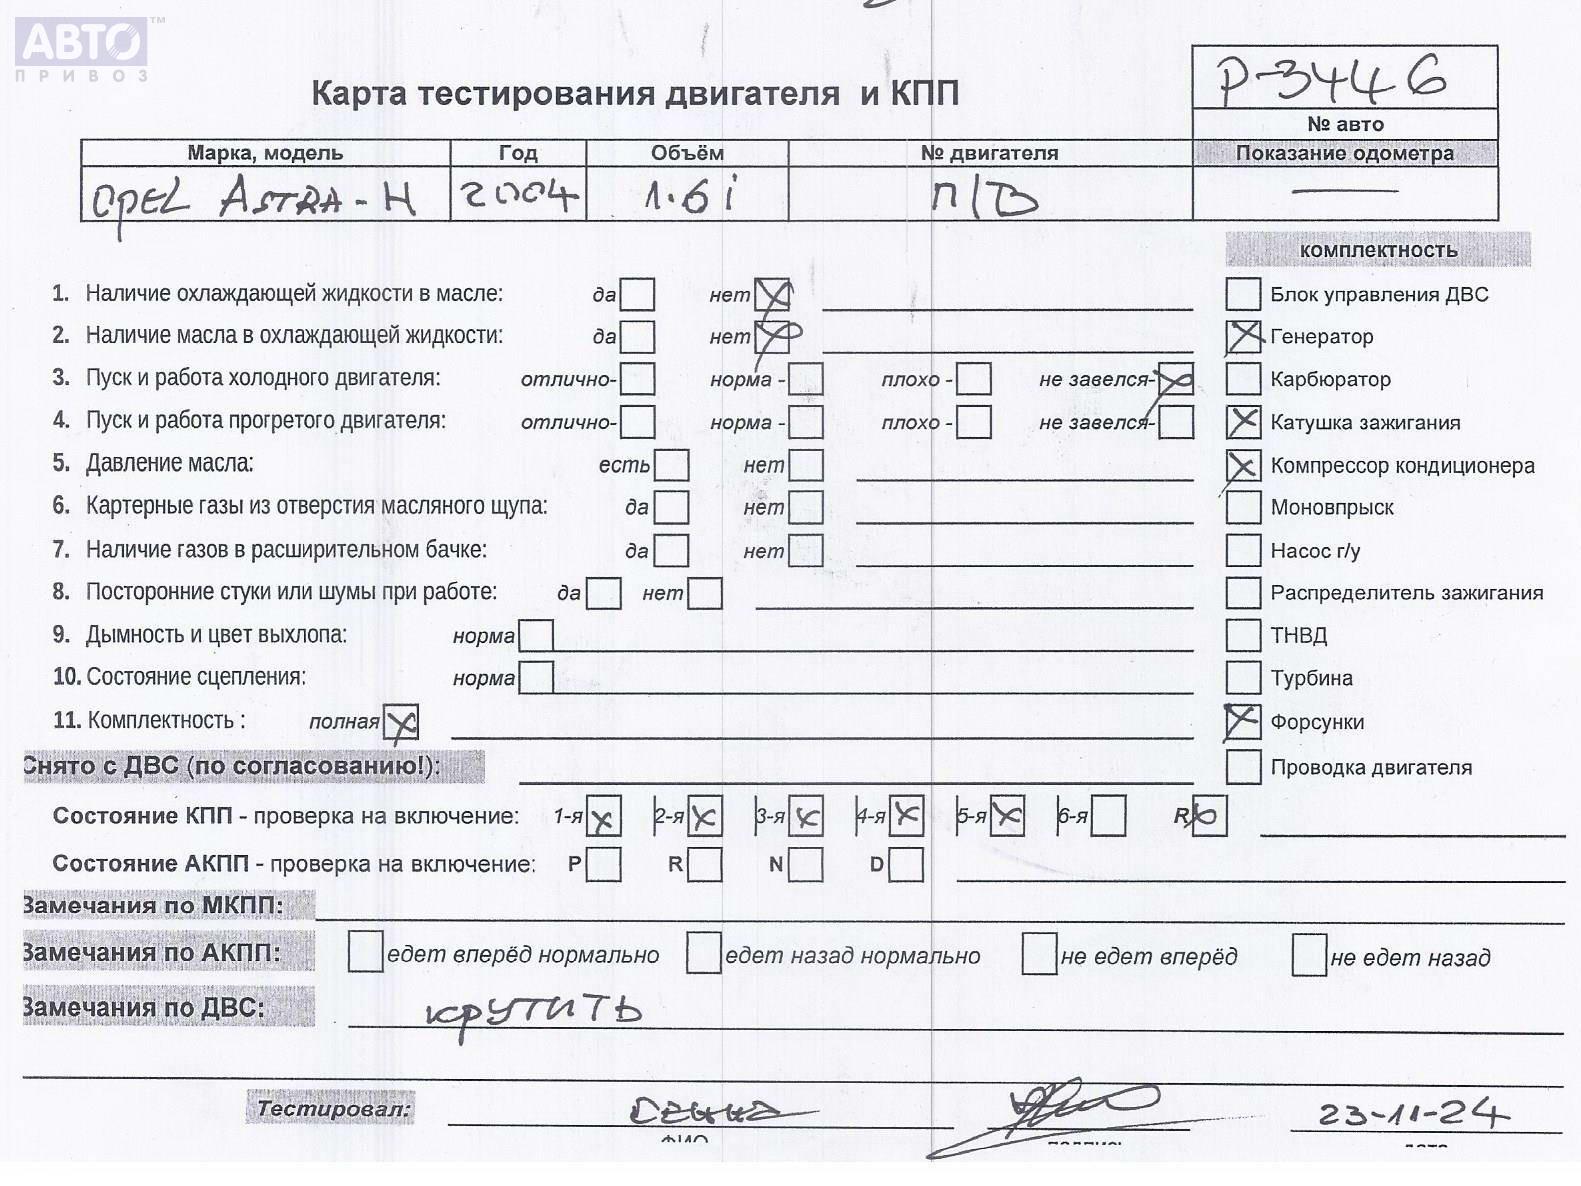 АВТО™
ПРИВОЗ
Карта тестирования двигателя и КПП
P-3446
№ авто
Марка, модель Год Объём № двигателя Показание одометра
OPEL ASTRA-H 2004 1.6i П/В —
комплектность
1. Наличие охлаждающей жидкости в масле: да нет Блок управления ДВС
2. Наличие масла в охлаждающей жидкости: да нет Генератор
3. Пуск и работа холодного двигателя: отлично- норма - плохо - не завелся- Карбюратор
4. Пуск и работа прогретого двигателя: отлично- норма - плохо - не завелся- Катушка зажигания
5. Давление масла: есть нет Компрессор кондиционера
6. Картерные газы из отверстия масляного щупа: да нет Моновпрыск
7. Наличие газов в расширительном бачке: да нет Насос г/у
8. Посторонние стуки или шумы при работе: да нет Распределитель зажигания
9. Дымность и цвет выхлопа: норма ТНВД
10. Состояние сцепления: норма Турбина
11. Комплектность : полная Форсунки
Снято с ДВС (по согласованию!): Проводка двигателя
Состояние КПП - проверка на включение: 1-я 2-я 3-я 4-я 5-я 6-я R
Состояние АКПП - проверка на включение: P R N D
Замечания по МКПП:
Замечания по АКПП: едет вперёд нормально едет назад нормально не едет вперёд не едет назад
Замечания по ДВС: крутить
Тестировал: 23-11-24
ФИО подпись дата